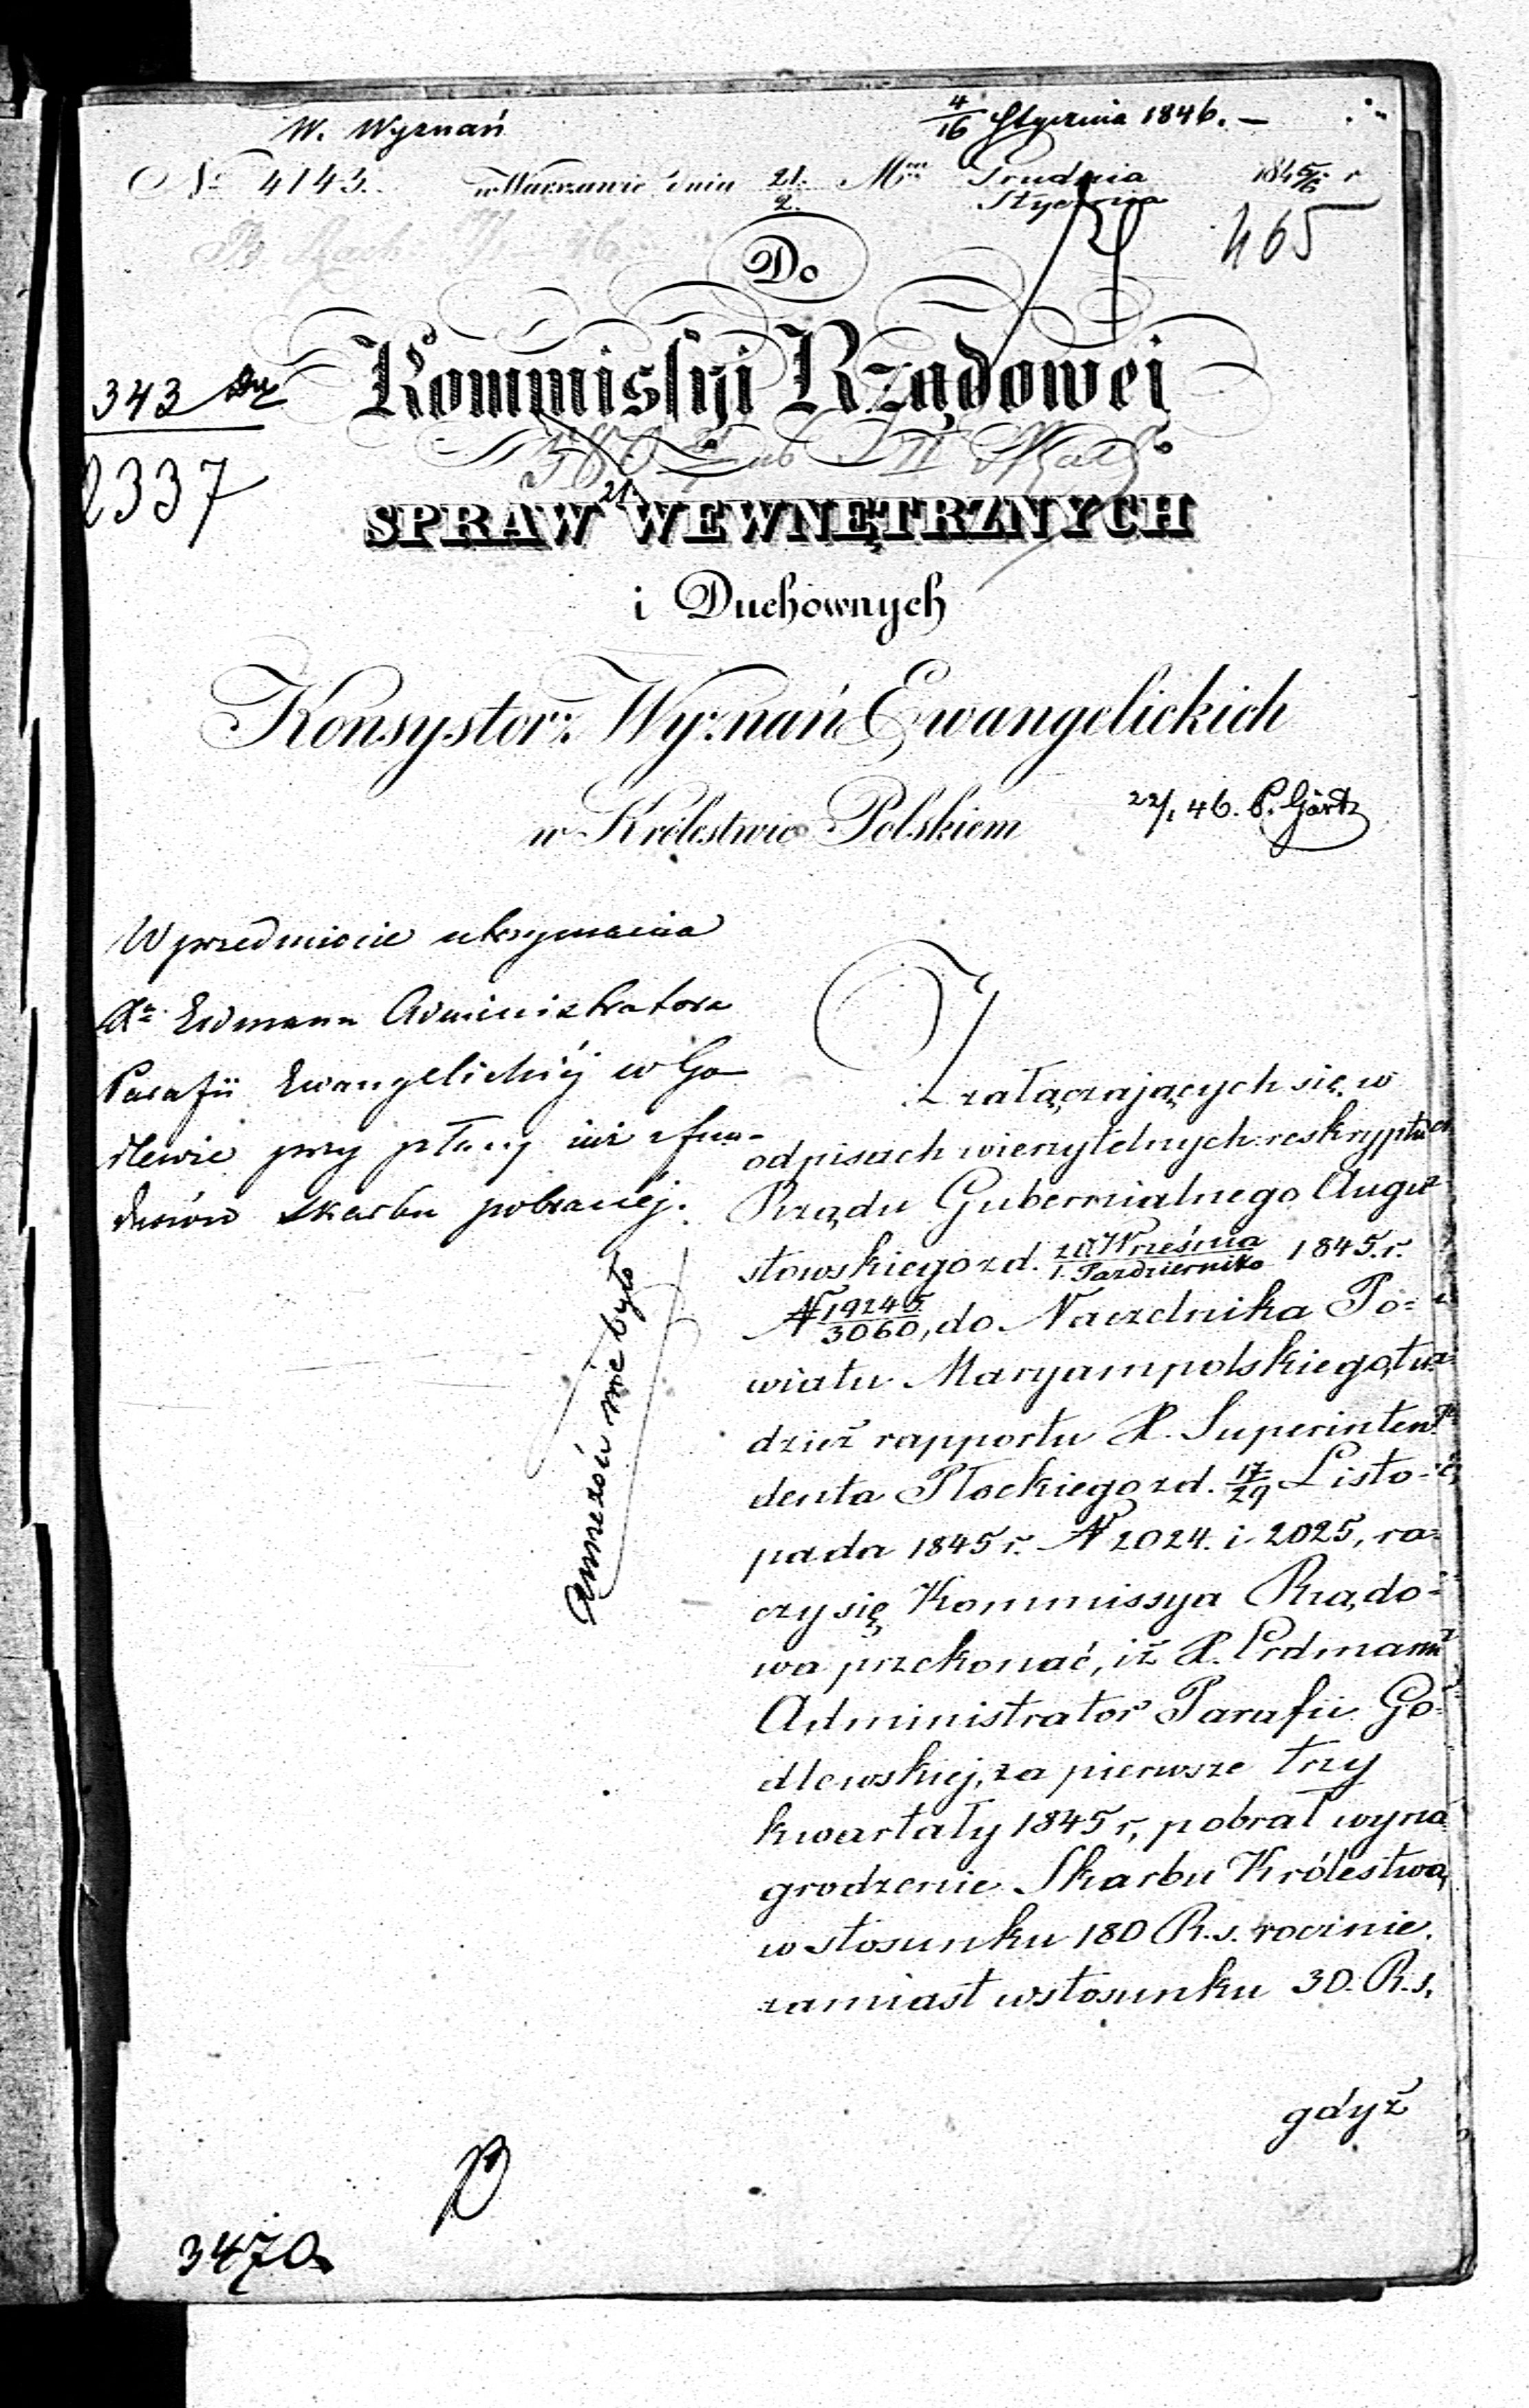 W. Wyznań
4/16 Stycznia 1846. —
№ 4143. w Warszawie dnia 21./2. Mca Grudnia/Stycznia 1845/6 r
465
Do
Kommissyi Rządowej
343
2337
SPRAW WEWNĘTRZNYCH
i Duchownych
Konsystorz Wyznań Ewangelickich
w Królestwie Polskiem
22/1 46. P. Gärtz
W przedmiocie utrzymania
Xa Erdmann Administratora
Parafii Ewangelickiéj w Go-
dlewie przy płacy iuż z fun-
duszów Skarbu pobranéj.
Annexów nie było
Z załączających się w
odpisach wierzytelnych: reskryptu
Rządu Gubernialnego Augu-
stowskiego z d. 19 Września/1. Października 1845. r.
№ 19245/3060, do Naczelnika Po=
wiatu Maryampolskiego, tu-
dzież rapportu X. Superinten-
denta Płockiego z d. 17/29 Listo-
pada 1845 r. № 2024. i 2025, ra-
czy się Kommissya Rządo-
wa przekonać, iż X. Erdmann
Administrator Parafii Go-
dlewskiej, za pierwsze trzy
kwartały 1845 r, pobrał wyna-
grodzenie Skarbu Królestwa,
w stosunku 180 R.s. rocznie.
zamiast w stosunku 30. R.s,
gdyż
3470